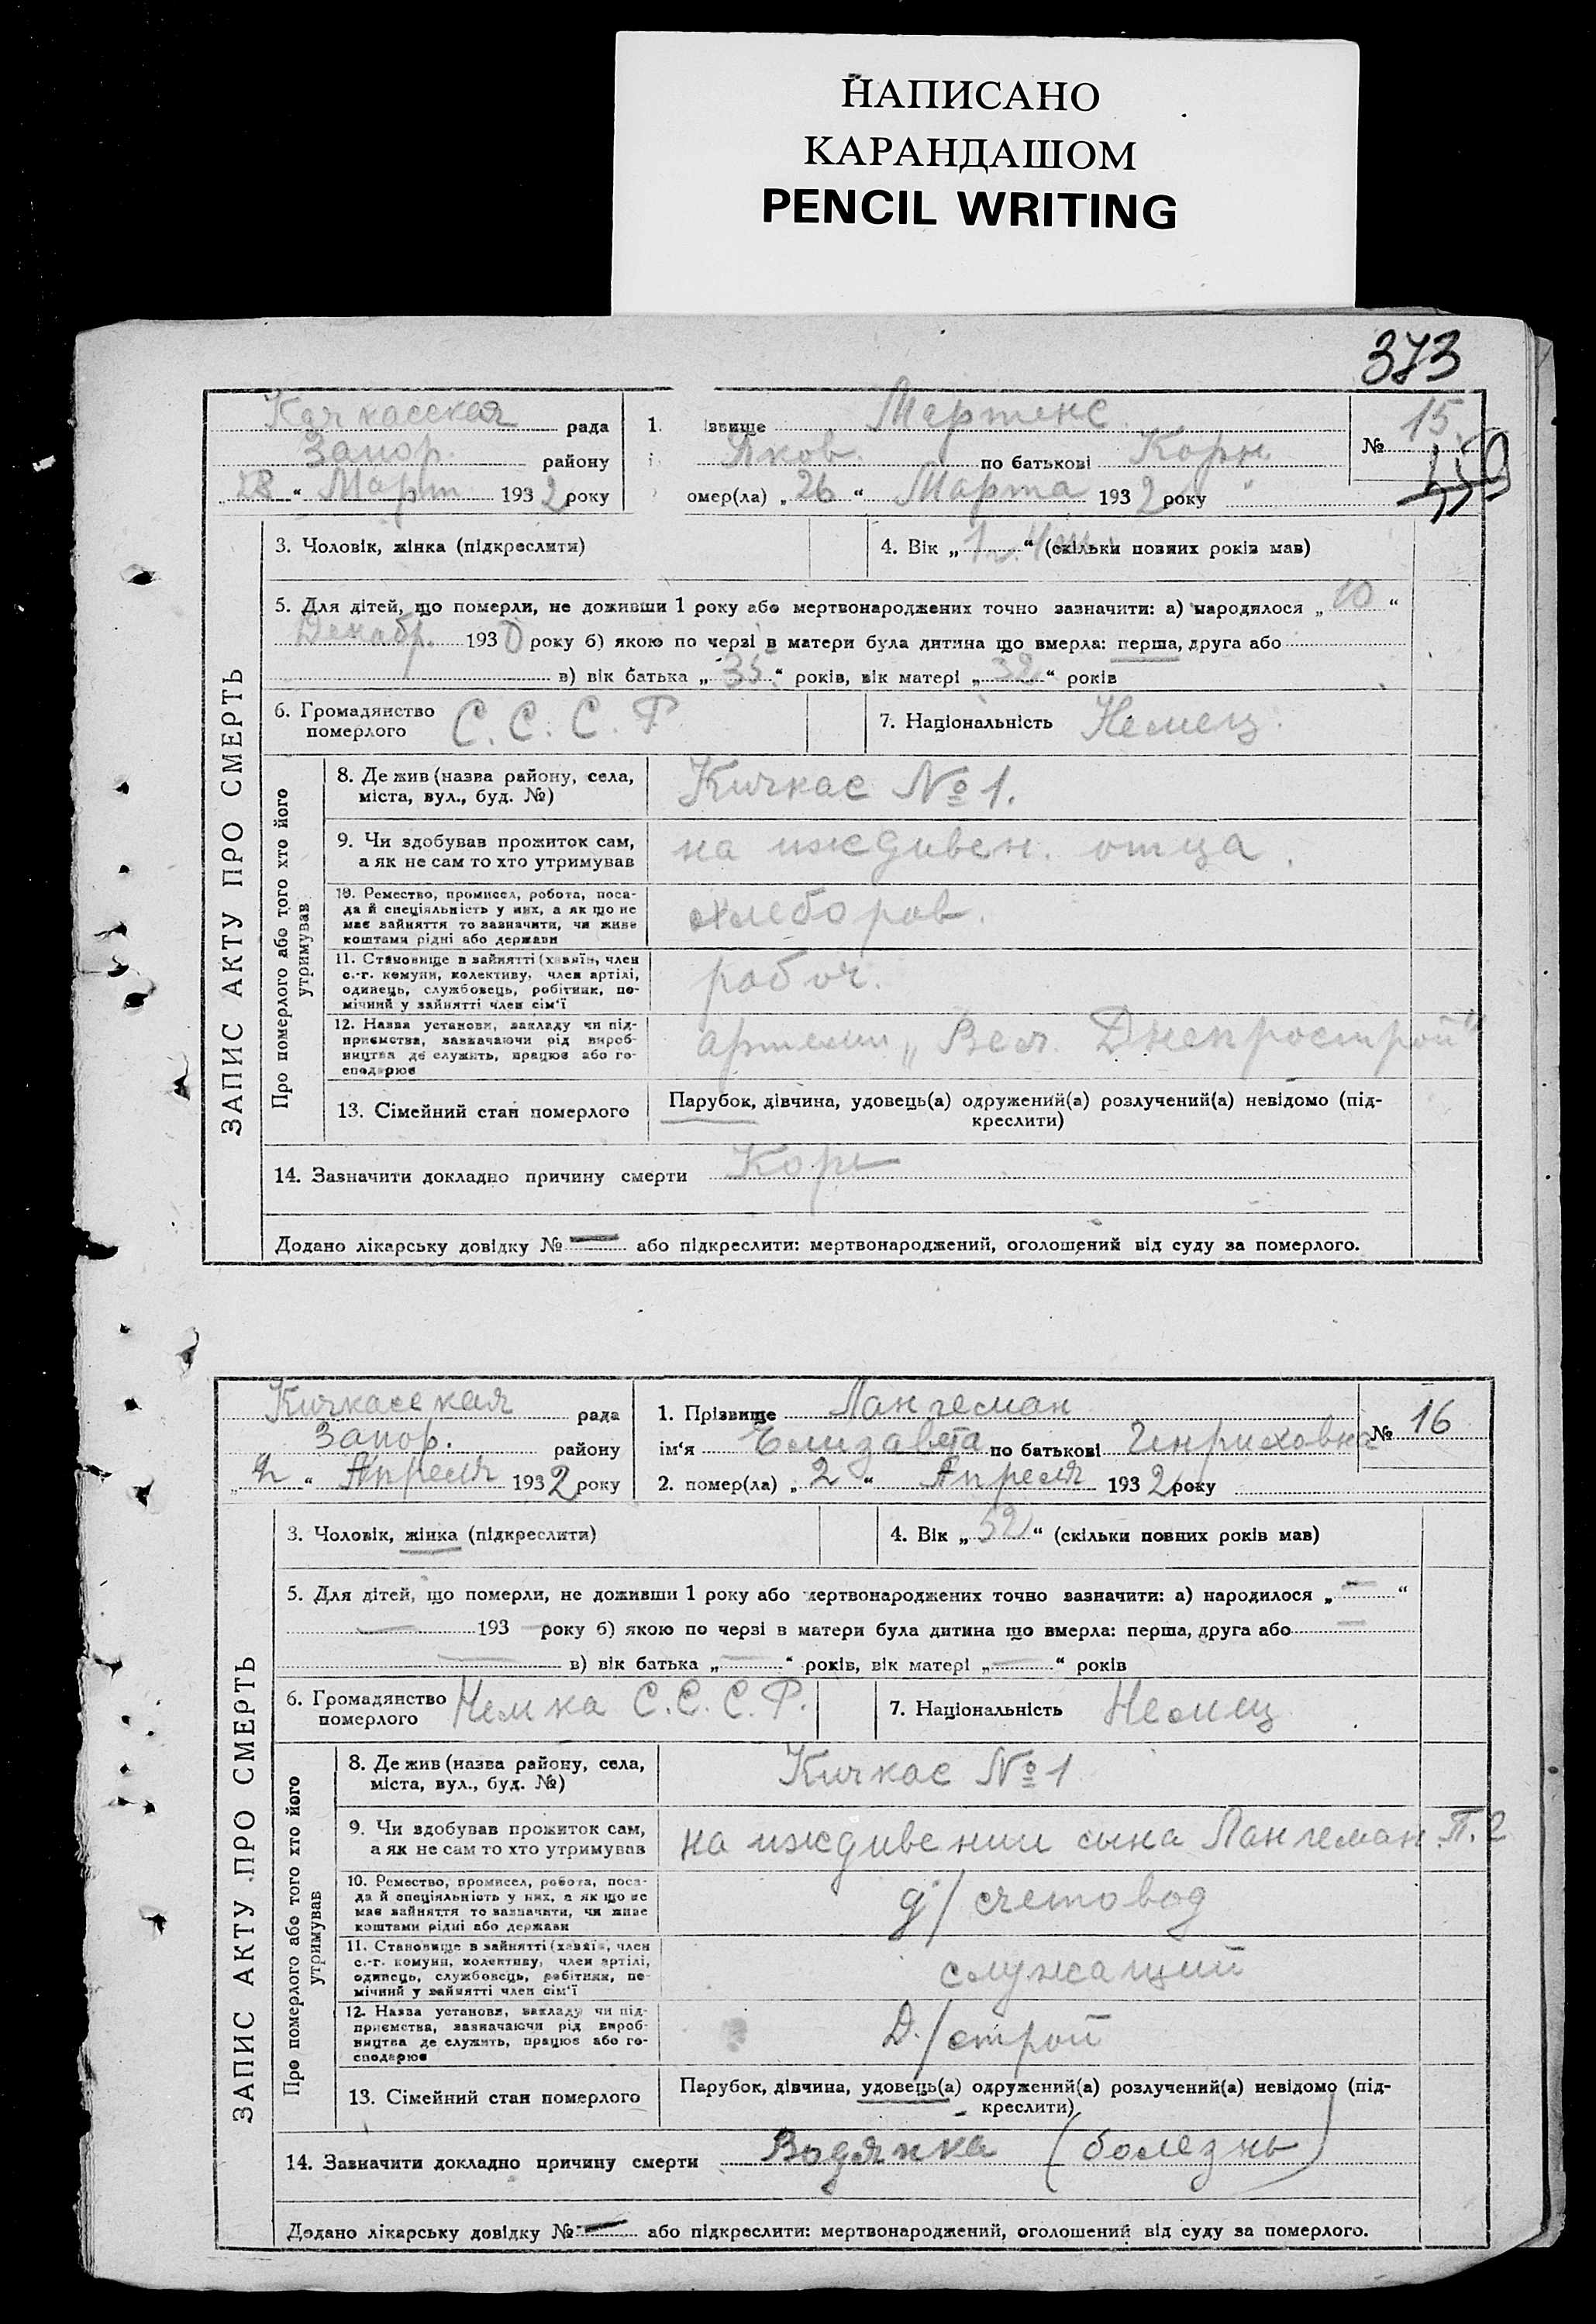 НАПИСАНО
КАРАНДАШОМ
PENCIL WRITING
373
Кичкасская рада
Запор. району
28 “ Март 1932 року
1. ізвище Мартенс
Яков по батькові Корн.
омер(ла) „ 26 “ Марта 1932 року
№ 15.
ЗАПИС АКТУ ПРО СМЕРТЬ
3. Чоловік, жінка (підкреслити)
4. Вік „ 1 г. 4 м. “ (скільки повних років мав)
5. Для дітей, що померли, не доживши 1 року або мертвонароджених точно зазначити: а) народилося „ 10 “
Декабр. 1930 року б) якою по черзі в матери була дитина що вмерла: перша, друга або
в) вік батька „ 35 “ років, вік матері „ 32 “ років
6. Громадянство
померлого С. С. С. Р
7. Національність Немец.
Про померлого або того хто його
утримував
8. Де жив (назва району, села,
міста, вул., буд. №) Кичкас № 1.
9. Чи здобував прожиток сам,
а як не сам то хто утримував на иждивен. отца.
10. Ремество, промисел, робота, поса-
да й спеціяльність у них, а як що не
має зайняття то зазначити, чи живе
коштами рідні або держави хлебороб.
11. Становище в зайнятті (хазяїн, член
с.-г. комуни, колективу, член артілі,
одинець, службовець, робітник, по-
мічний у зайнятті член сім'ї рабоч.
12. Назва установи, закладу чи під-
приємства, зазначаючи рід вироб-
ництва де служить, працює або го-
сподарює артели „ Вел. Днепрострой“
13. Сімейний стан померлого
Парубок, дівчина, удовець(а) одружений(а) розлучений(а) невідомо (під-
креслити)
14. Зазначити докладно причину смерти Корь
Додано лікарську довідку № — або підкреслити: мертвонароджений, оголошений від суду за померлого.
Кичкасская рада
Запор. району
“ Апреля 1932 року
1. Прізвище Лангеман
ім‘я Елизавета по батькові Гинриховна
2. помер(ла) „ 2 “ Апреля 1932 року
№ 16
ЗАПИС АКТУ ПРО СМЕРТЬ
3. Чоловік, жінка (підкреслити)
4. Вік „ 52 “ (скільки повних років мав)
5. Для дітей, що померли, не доживши 1 року або мертвонароджених точно зазначити: а) народилося „ — “
— 193 — року б) якою по черзі в матери була дитина що вмерла: перша, друга або —
— в) вік батька „ — “ років, вік матері „ — “ років
6. Громадянство
померлого Немка С. С. С. Р.
7. Національність Немец
Про померлого або того хто його
утримував
8. Де жив (назва району, села,
міста, вул., буд. №) Кичкас № 1
9. Чи здобував прожиток сам,
а як не сам то хто утримував на иждивении сына Лангеман П. Г
10. Ремество, промисел, робота, поса-
да й спеціяльність у них, а як що не
має зайняття то зазначити, чи живе
коштами рідні або держави д/ счетовод
11. Становище в зайнятті (хазяїн, член
с.-г. комуни, колективу, член артілі,
одинець, службовець, робітник, по-
мічний у зайнятті член сім'ї служащий
12. Назва установи, закладу чи під-
приємства, зазначаючи рід вироб-
ництва де служить, працює або го-
сподарює Д./строй
13. Сімейний стан померлого
Парубок, дівчина, удовець(а) одружений(а) розлучений(а) невідомо (під-
креслити)
14. Зазначити докладно причину смерти Водянка (болезнь)
Додано лікарську довідку № — або підкреслити: мертвонароджений, оголошений від суду за померлого.